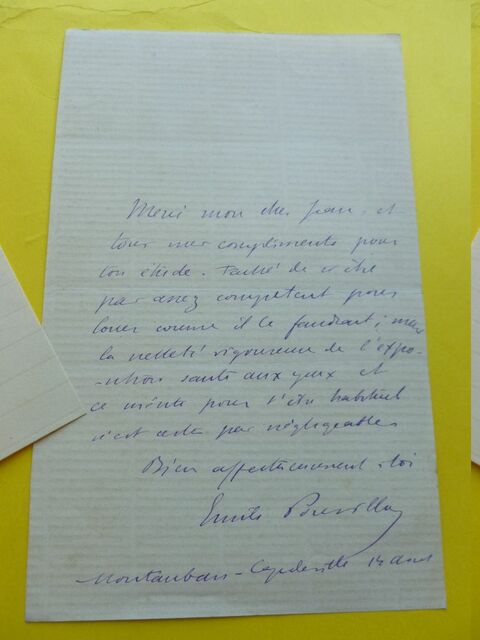 Merci mon cher Jean, et
tous mes compliments pour
ton étude. Fâché de n'être
pas assez compétent pour
louer comme il le faudrait ; mais
la netteté vigoureuse de l'expo-
-sition saute aux yeux et
ce mérite pour t'être habituel
n'est certes pas négligeable.
Bien affectueusement à toi
Emile Pouvillon
Montauban - Capdeville 14 avril